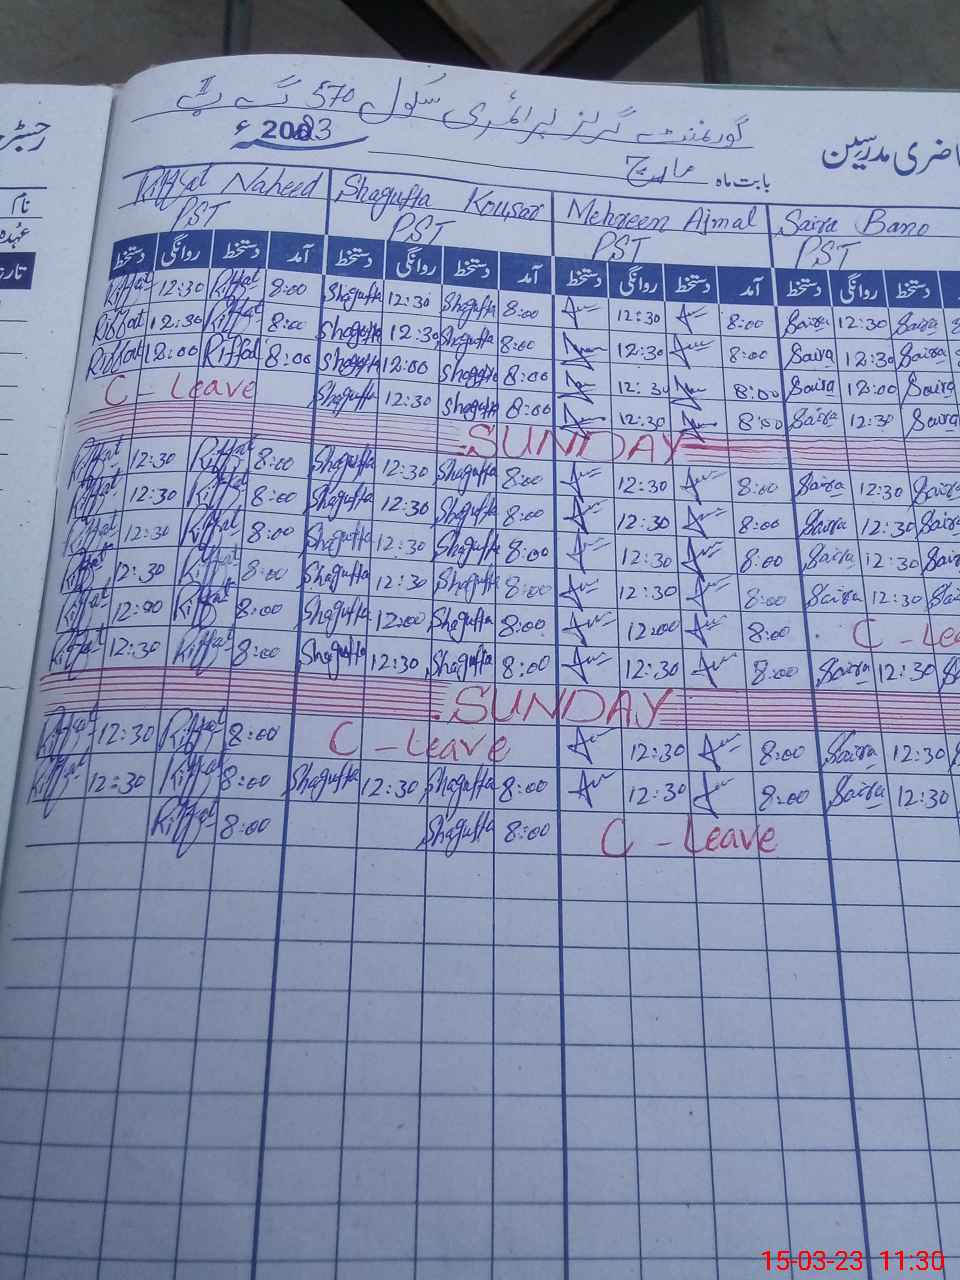 گورنمنٹ گرلز پرائمری سکول 570 گ ب
حاضری مدرسین بابت ماہ مارچ 2023ء
رجسٹر
نام
عہدہ
Riffat Naheed Shagufta Kousar Mehreen Ajmal Saira Bano
PST PST PST PST
دستخط روانگی دستخط آمد دستخط روانگی دستخط آمد دستخط روانگی دستخط آمد دستخط روانگی دستخط
Riffat 12:30 Riffat 8:00 Shagufta 12:30 Shagufta 8:00 12:30 8:00 Saira 12:30 Saira
Riffat 12:30 Riffat 8:00 Shagufta 12:30 Shagufta 8:00 12:30 8:00 Saira 12:30 Saira
Riffat 12:00 Riffat 8:00 Shagufta 12:00 Shagufta 8:00 12:30 8:00 Saira 12:00 Saira
C - Leave Shagufta 12:30 Shagufta 8:00 12:30 8:00 Saira 12:30 Saira
SUNDAY
Riffat 12:30 Riffat 8:00 Shagufta 12:30 Shagufta 8:00 12:30 8:00 Saira 12:30 Saira
Riffat 12:30 Riffat 8:00 Shagufta 12:30 Shagufta 8:00 12:30 8:00 Saira 12:30 Saira
Riffat 12:30 Riffat 8:00 Shagufta 12:30 Shagufta 8:00 12:30 8:00 Saira 12:30 Saira
Riffat 12:30 Riffat 8:00 Shagufta 12:30 Shagufta 8:00 12:30 8:00 Saira 12:30 Sai
Riffat 12:00 Riffat 8:00 Shagufta 12:00 Shagufta 8:00 12:00 8:00 C - Lea
Riffat 12:30 Riffat 8:00 Shagufta 12:30 Shagufta 8:00 12:30 8:00 Saira 12:30 S
SUNDAY
Riffat 12:30 Riffat 8:00 C - Leave 12:30 8:00 Saira 12:30
Riffat 12:30 Riffat 8:00 Shagufta 12:30 Shagufta 8:00 12:30 8:00 Saira 12:30
Riffat 8:00 Shagufta 8:00 C - Leave
15-03-23 11:30